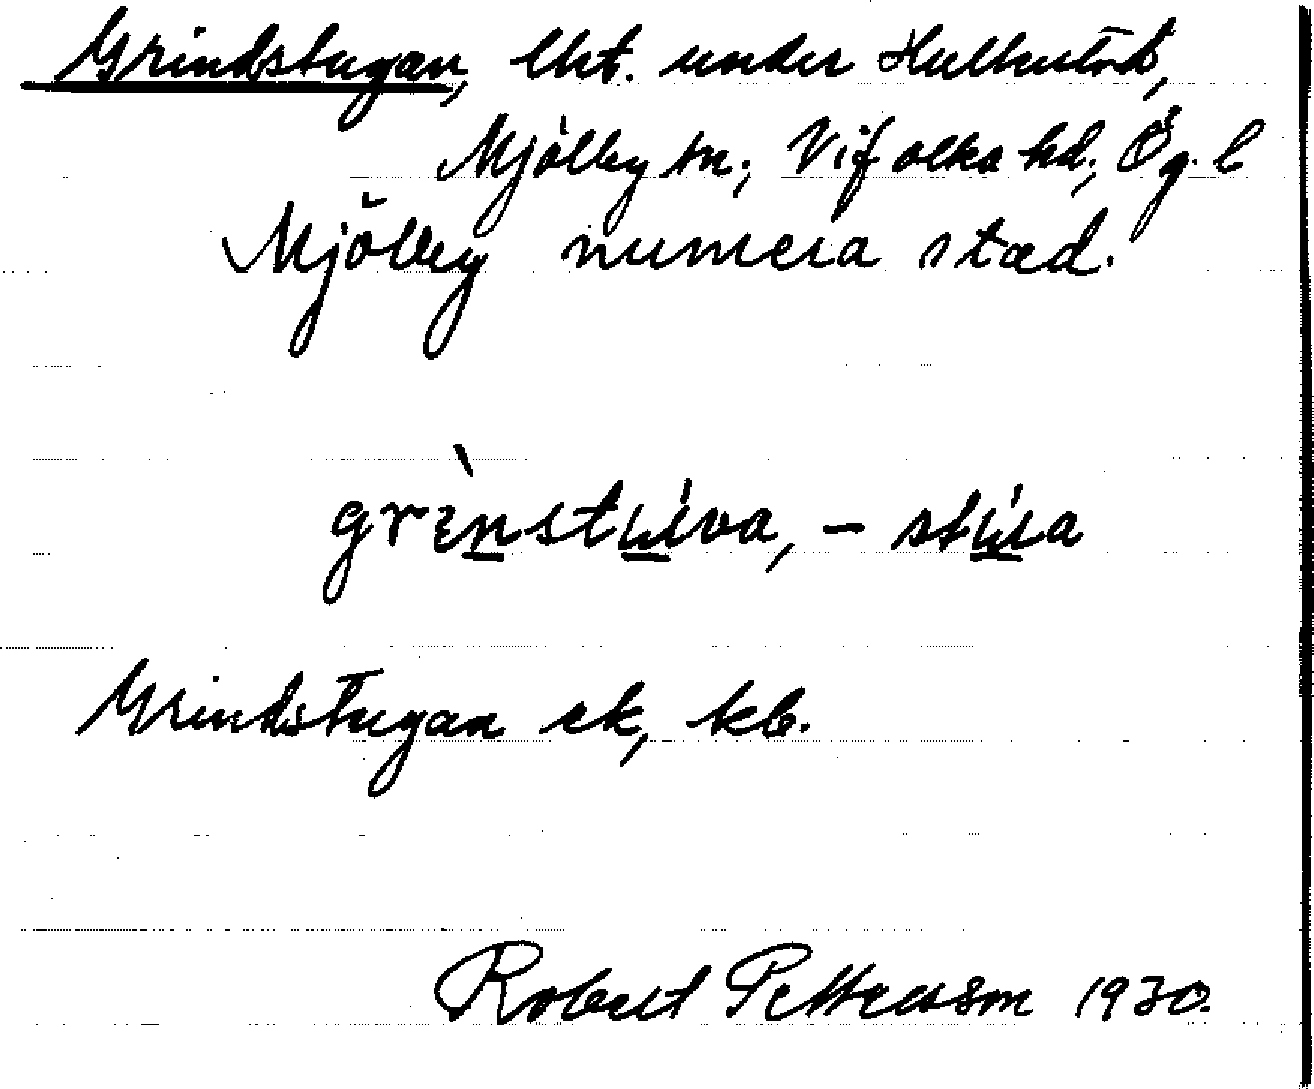 Grindstugan, lht. under Hulterstad,
Mjölby sn; Vifolka hd; Ög. l
Mjölby numera stad.
grènstuva, – stua
Grindstugan ek, kb.
Robert Pettersson 1930.